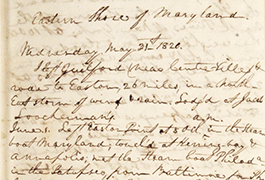 Eastern Shore of Maryland.
Wednesday May 21st 1820.
left Guilford (near Centreville &
rode to Easton 26 miles, in a North
East storm of wind & rain, Lodg'd at Jacob
Loockermans.
June 1. Left Easton Point at 8 Oclk in the Steam
boat Maryland, touch'd at Herring bay &
Annapolis, met the Steam boat Philada
in the Patapsco, from Baltimore for